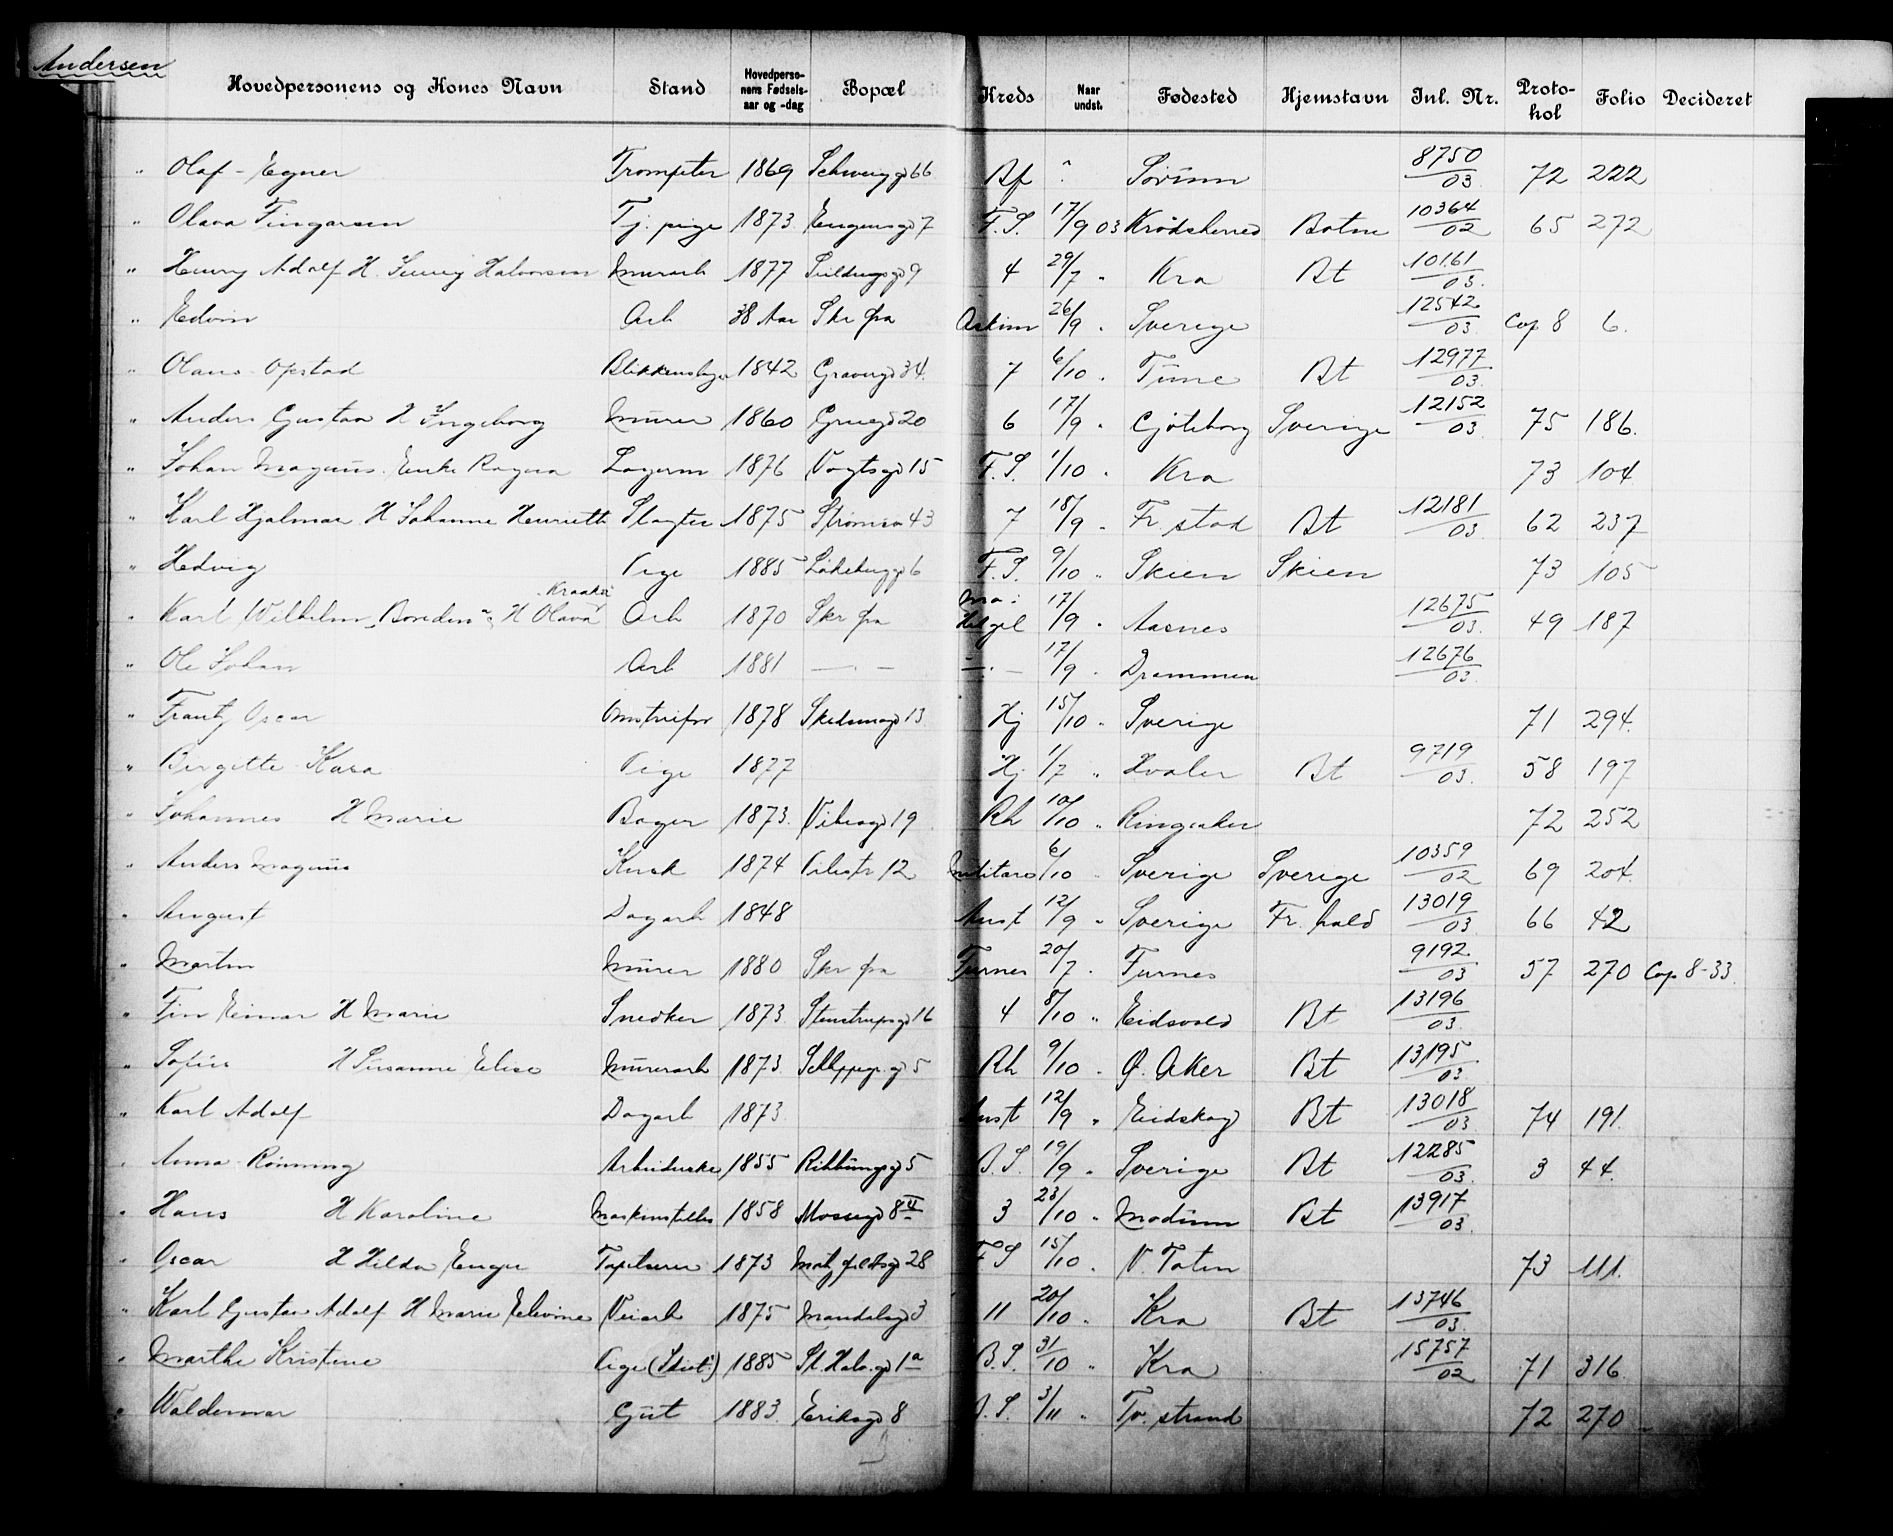 Andersen
Hovedpersonens og Kones Navn Stand Hovedperso-nens Fødsels-aar og -dag Bopæl Kreds Naar undst. Fødested Hjemstavn Inl. Nr. Proto-kol Folio Decideret
" Olaf - Egner Trompeter 1869 Schweigg 66 " Sørum 8750/03 72 222
" Olava Tj. pige 1873 7 F. S. 17/9 03 Krødsherred Botne 10364/02 65 272
" Henry Adolf H. Halvorsen Murarb 1877 9 4 29/7 " Kra Bt 10161/03
" Edvin Arb 38 Aar Skr fra Askim 26/9 " Sverige 12542/03 Cop 8 6.
" Olaus Opstad 1842 34 7 6/10 " Tune Bt 12977/03
" Anders Gustav H Ingeborg Murer 1860 Gruegd 20 6 17/9 " Gjøteborg Sverige 12152/03 75 186.
" Johan Magnus. Enke Ragna Lagerm 1876 Vogtsgd 15 F. S. 1/10 " Kra 73 104
" Karl Hjalmar H Johanne Henriette Slagter 1875 Strømsv 43 7 18/9 " Fr. stad Bt 12181/03 62 237
" Hedvig Pige 1885 6 F. S. 9/10 " Skien Skien 73 105
" Karl Wilhelm H Olava Arb 1870 Skr fra 17/9 " Aasnes 12675/03 49 187
" Ole Johan Arb 1881 — " — — " — 17/9 " Drammen 12676/03
" Frantz Oscar 1878 Skedsmogd 13 Hj 15/10 " Sverige 71 294.
" Birgitte Kara Pige 1877 Hj 1/7 " Hvaler Bt 9719/03 58 197
" Johannes H Marie Bager 1873. Vibesgd 19 Rh 10/10 " Ringsaker 72 252
" Anders Magnus Kusk 1874 Pilestr 12 6/10 " Sverige Sverige 10359/02 69 204.
" August Dagarb 1848 Aust 12/9 " Sverige Fr. hald 13019/03 66 42
" Martin Murer 1880 Skr fra Furnes 20/7 " Furnes 9192/03 57 270 Cop. 8-33
" Einar H Marie Snedker 1873. Stenstrupsgd 16 4 8/10 " Eidsvold Bt 13196/03
" Sofus H Susanne Elise Murerarb 1873. Schleppegr. gd 5 Rh 9/10 " Ø. Aker Bt 13195/03
" Karl Adolf Dagarb 1873. Aust 12/9 " Eidskog Bt 13018/03 74 191.
" Anna Rønning Arbeiderske 1855 5 19/9 " Sverige Bt 12285/03 3 44.
" Hans H Karoline 1858 Mossegd 8 II 3 23/10 " Modum Bt 13917/03
" Oscar H Hilda Tapetserer 1873 28 F S 15/10 " V. Toten 73 111.
" Karl Gustav Adolf H Marie Veiarb 1875 Mandalsgd 3 11 20/10 " Kra Bt 13746/03
" Marthe Kristine Pige (Idiot) 1885 St. Halv. gd 1a B. S. 31/10 " Kra 15757/02 71 316
" Waldemar Gut 1883. Eriksgd 8 3/11 " Tv. strand 72 270